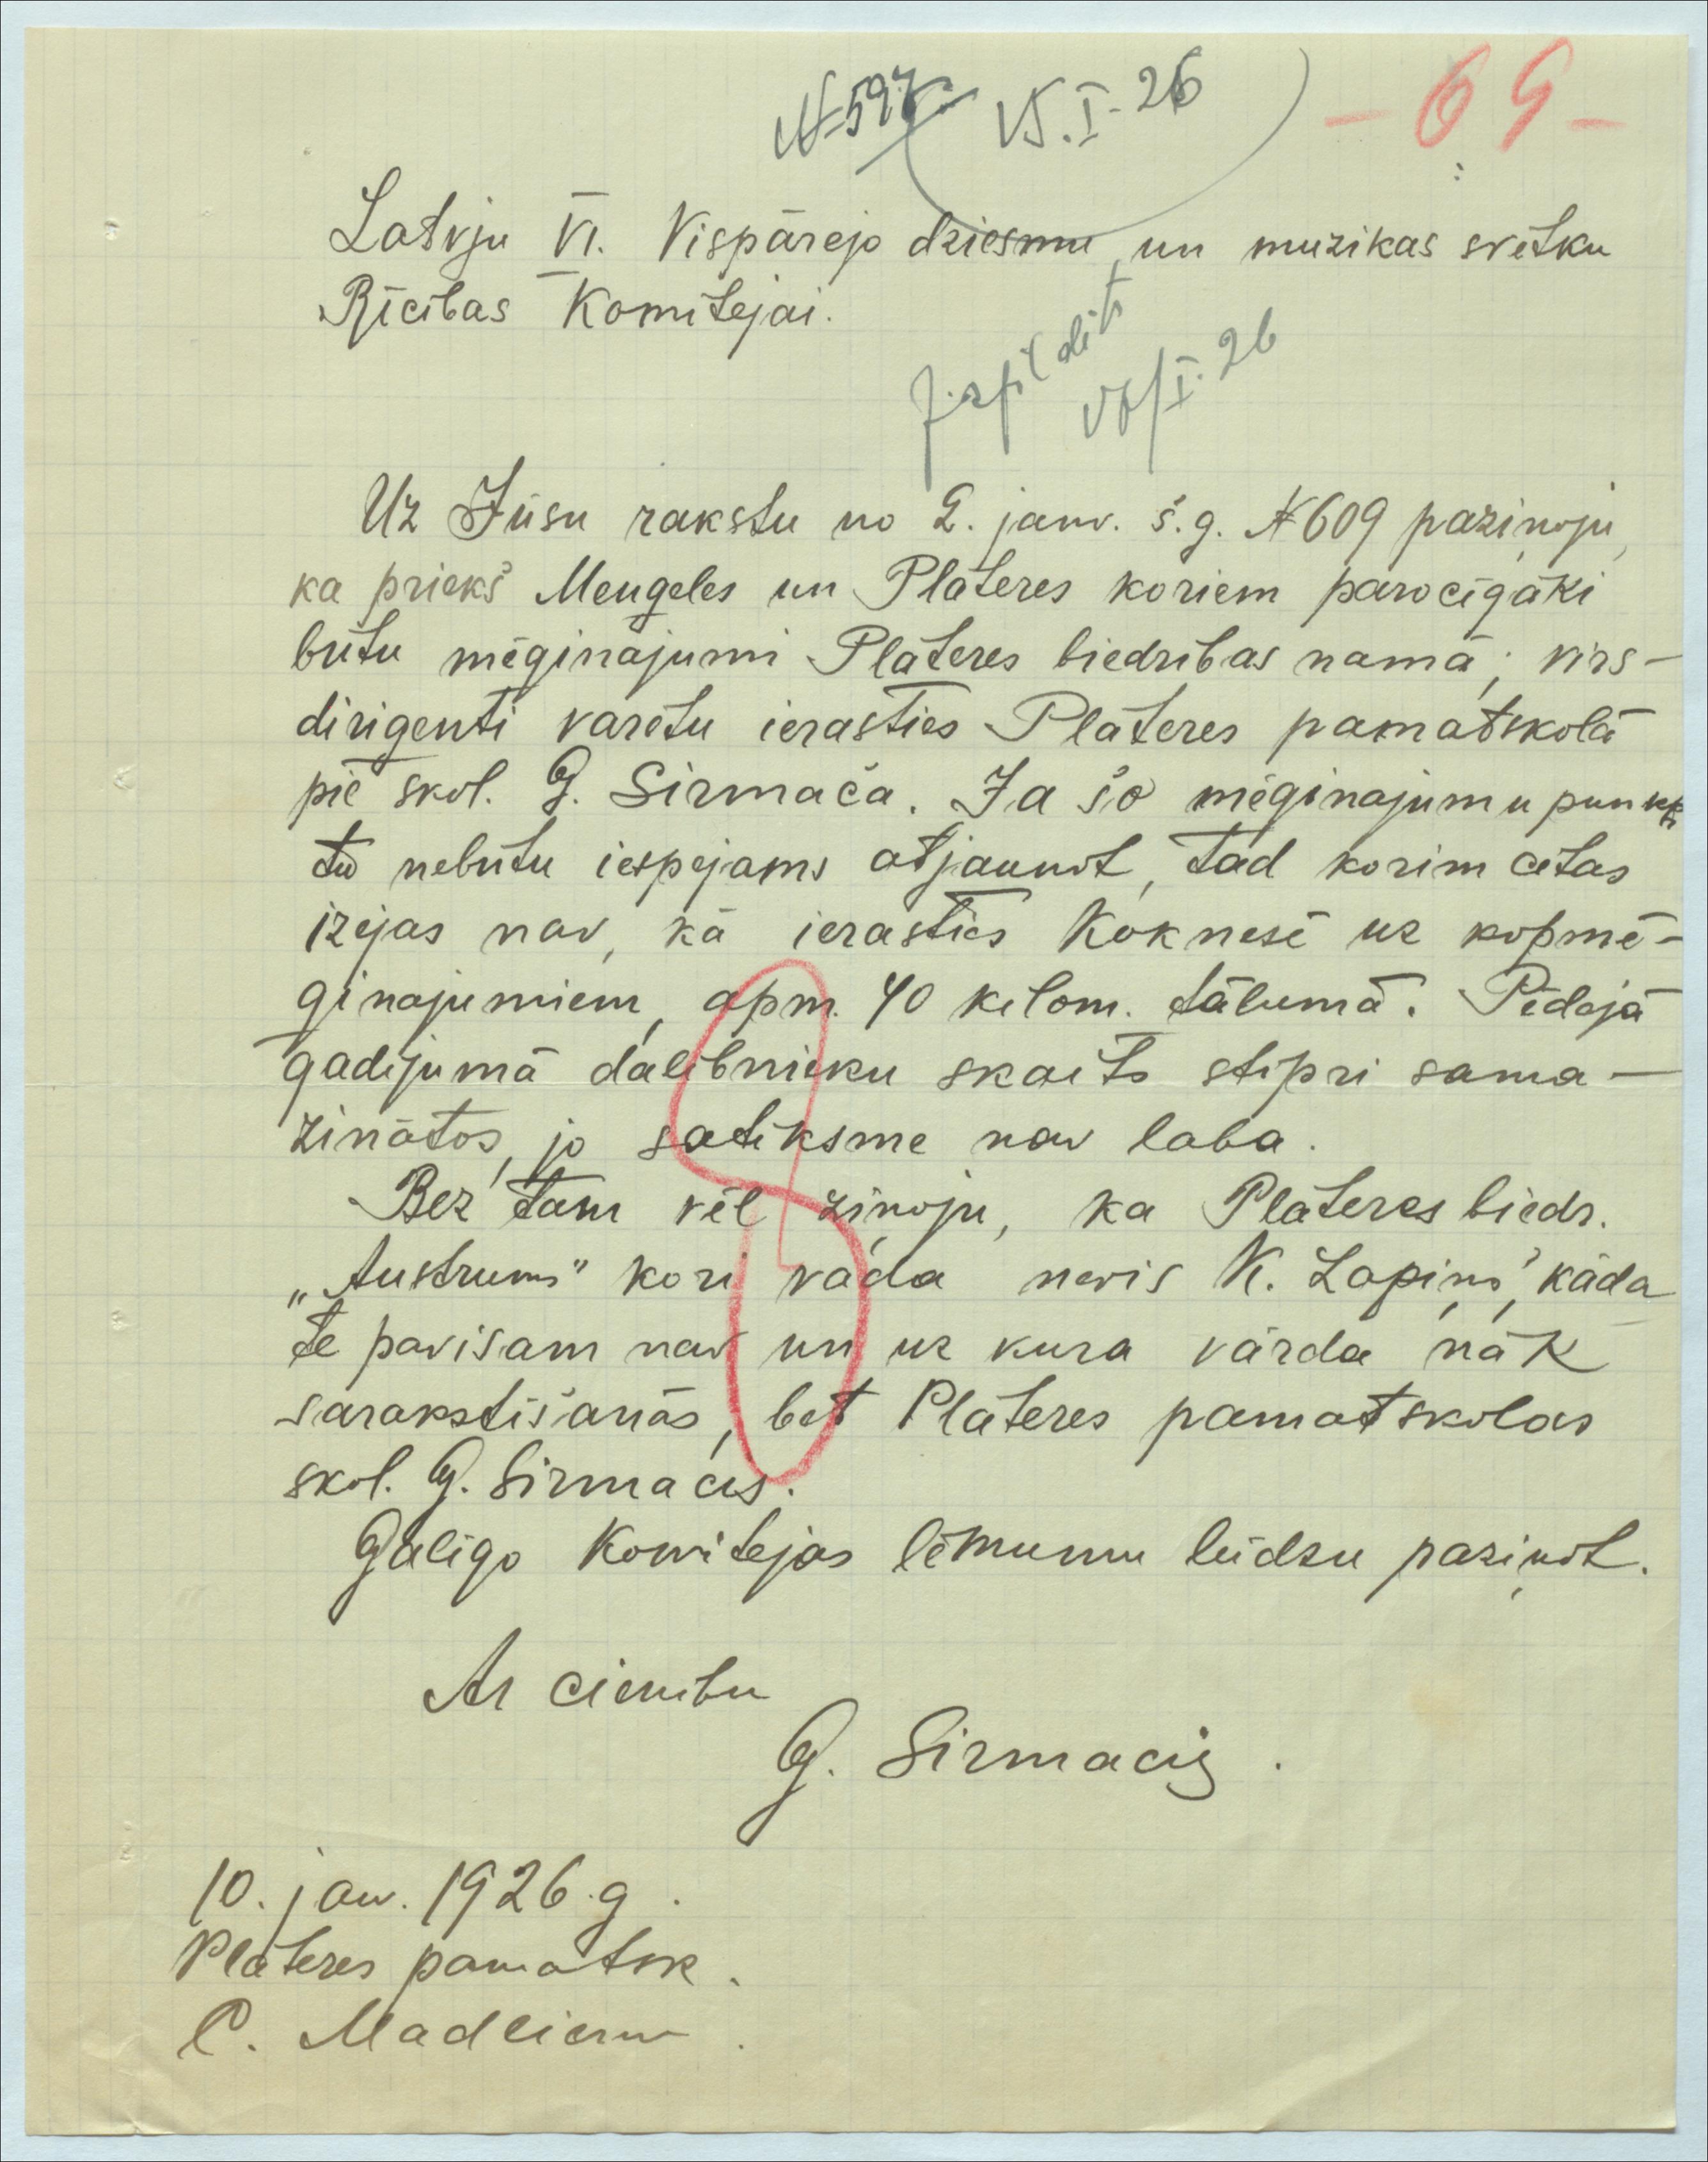 № 597 15.I.26
- 69 -
Latvju VI. Vispārejo dziesmu un muzikas svētku
Rīcības Komitejai.
Izpildīts
16/I.26
Uz Jūsu rakstu no 2. janv. š.g. № 609 paziņoju,
ka priekš Meņģeles un Plāteres koriem parocīgāki
būtu mēģinājumi Plāteres biedrības namā; virs-
dirigenti varētu ierasties Plāteres pamatskolā
pie skol. G. Sirmača. Ja šo mēģinajumu punk-
tu nebūtu iespējams atjaunot, tad korim citas
izejas nav, kā ierasties Koknesē uz kopmē-
ģinajumiem, apm. 40 kilom. tālumā. Pēdejā
gadījumā dalībnieku skaits stipri sama-
zinātos, jo satiksme nav laba.
Bez tam vēl ziņoju, ka Plāteres biedr.
„Austrums" kori vada nevis K. Lapiņš, kāda
te pavisam nav un uz kura vārda nāk
sarakstīšanās, bet Plāteres pamatskolas
skol. G. Sirmacis.
Galīgo Komitejas lēmumu lūdzu paziņot.
Ar cienību
G. Sirmacis.
10. janv. 1926.g.
Plāteres pamatsk.
C. Madlienu.